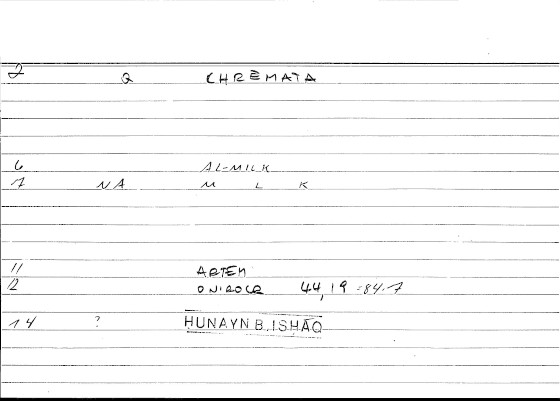 2 Q CHREMATA
6 AL-MILK
7 NA M L K
11 ARTEM
12 ONIROCR 44,19 = 84.7
14 ? HUNAYN B. ISHĀQ